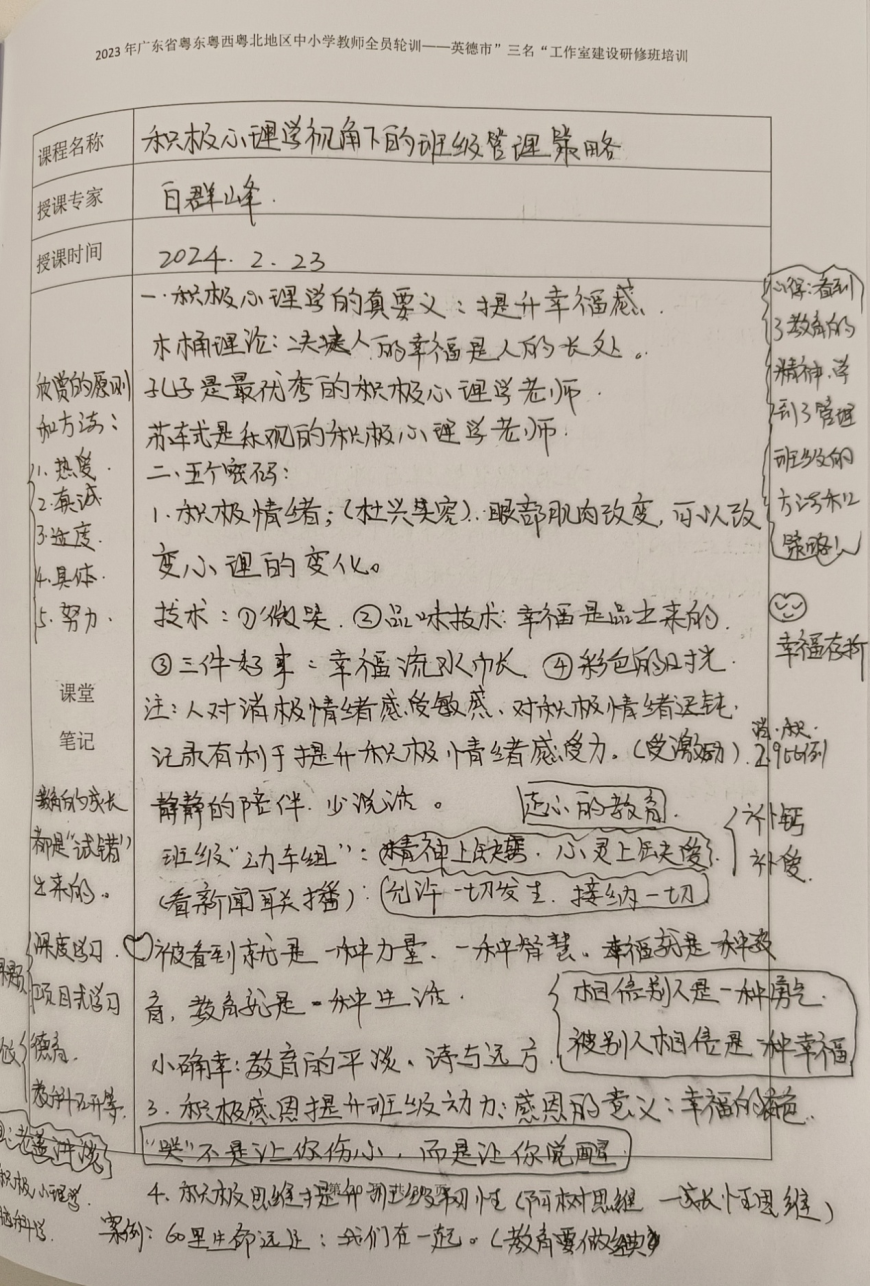 2023年广东省粤东粤西粤北地区中小学教师全员轮训——英德市”三名“工作室建设研修班培训
课程名称 积极心理学视角下的班级管理策略
授课专家 白群峰.
授课时间 2024.2.23
一.积极心理学的真要义:提升幸福感.
木桶理论:决定人的幸福是人的长处。
孔子是最优秀的积极心理学老师.
苏轼是乐观的积极心理学老师.
二、五个密码:
1.积极情绪;(杜兴笑容).眼部肌肉改变,可以改
变心理的变化。
技术:①微笑.②品味技术:幸福是品出来的.
③三件好事:幸福流水帐、④彩色的时光.
注:人对消极情绪感受敏感、对积极情绪迟钝.
记录有利于提升积极情绪感受力。(受激励)
静静的陪伴.少说话。 走心的教育.
班级“动车组”:精神上缺钙.心灵上缺爱.
(看新闻联播):允许一切发生.接纳一切
被看到就是一种力量、一种智慧。幸福就是一种教
育,教育就是一种生活.
小确幸:教育的平淡、诗与远方.
相信别人是一种勇气.
被别人相信是一种幸福
3.积极感恩提升班级动力:感恩的意义:幸福的底色.
“哭”不是让你伤心,而是让你觉醒
4.积极思维提升班级韧性(阿树思维 一成长性思维)
案例:60里生命远足:我们在一起。(教育要做经典)
欣赏的原则
和方法:
1.热爱.
2.真诚
3.适度.
4.具体.
5.努力.
课堂
笔记
教育的成长
都是“试错”
出来的。
深度学习.
项目式学习
德育.
积极心理学.
心得:看到
了教育的
精神.学
到了管理
班级的
方法和
策略
幸福存折
补钙
补爱.